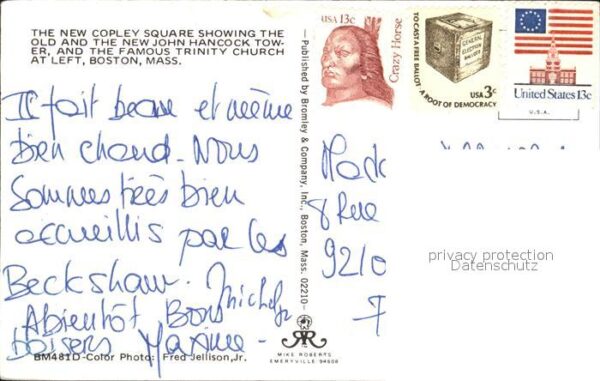 THE NEW COPLEY SQUARE SHOWING THE
OLD AND THE NEW JOHN HANCOCK TOW-
ER, AND THE FAMOUS TRINITY CHURCH
AT LEFT, BOSTON, MASS.
Il fait beau et même
bien chaud. Nous
sommes très bien
accueillis par les
Beckshaw.
A bientôt Bons
baisers Maxime -
BM481D-Color Photo: Fred Jellison, Jr.
— Published by Bromley & Company, Inc., Boston, Mass. 02210—
MIKE ROBERTS
EMERYVILLE 94608
USA 13c
Crazy Horse
TO CAST A FREE BALLOT
A ROOT OF DEMOCRACY
GENERAL
ELECTION
BALLOTS
USA 3c
United States 13c
U.S.A.
8 Rue
9210
F
privacy protection
Datenschutz